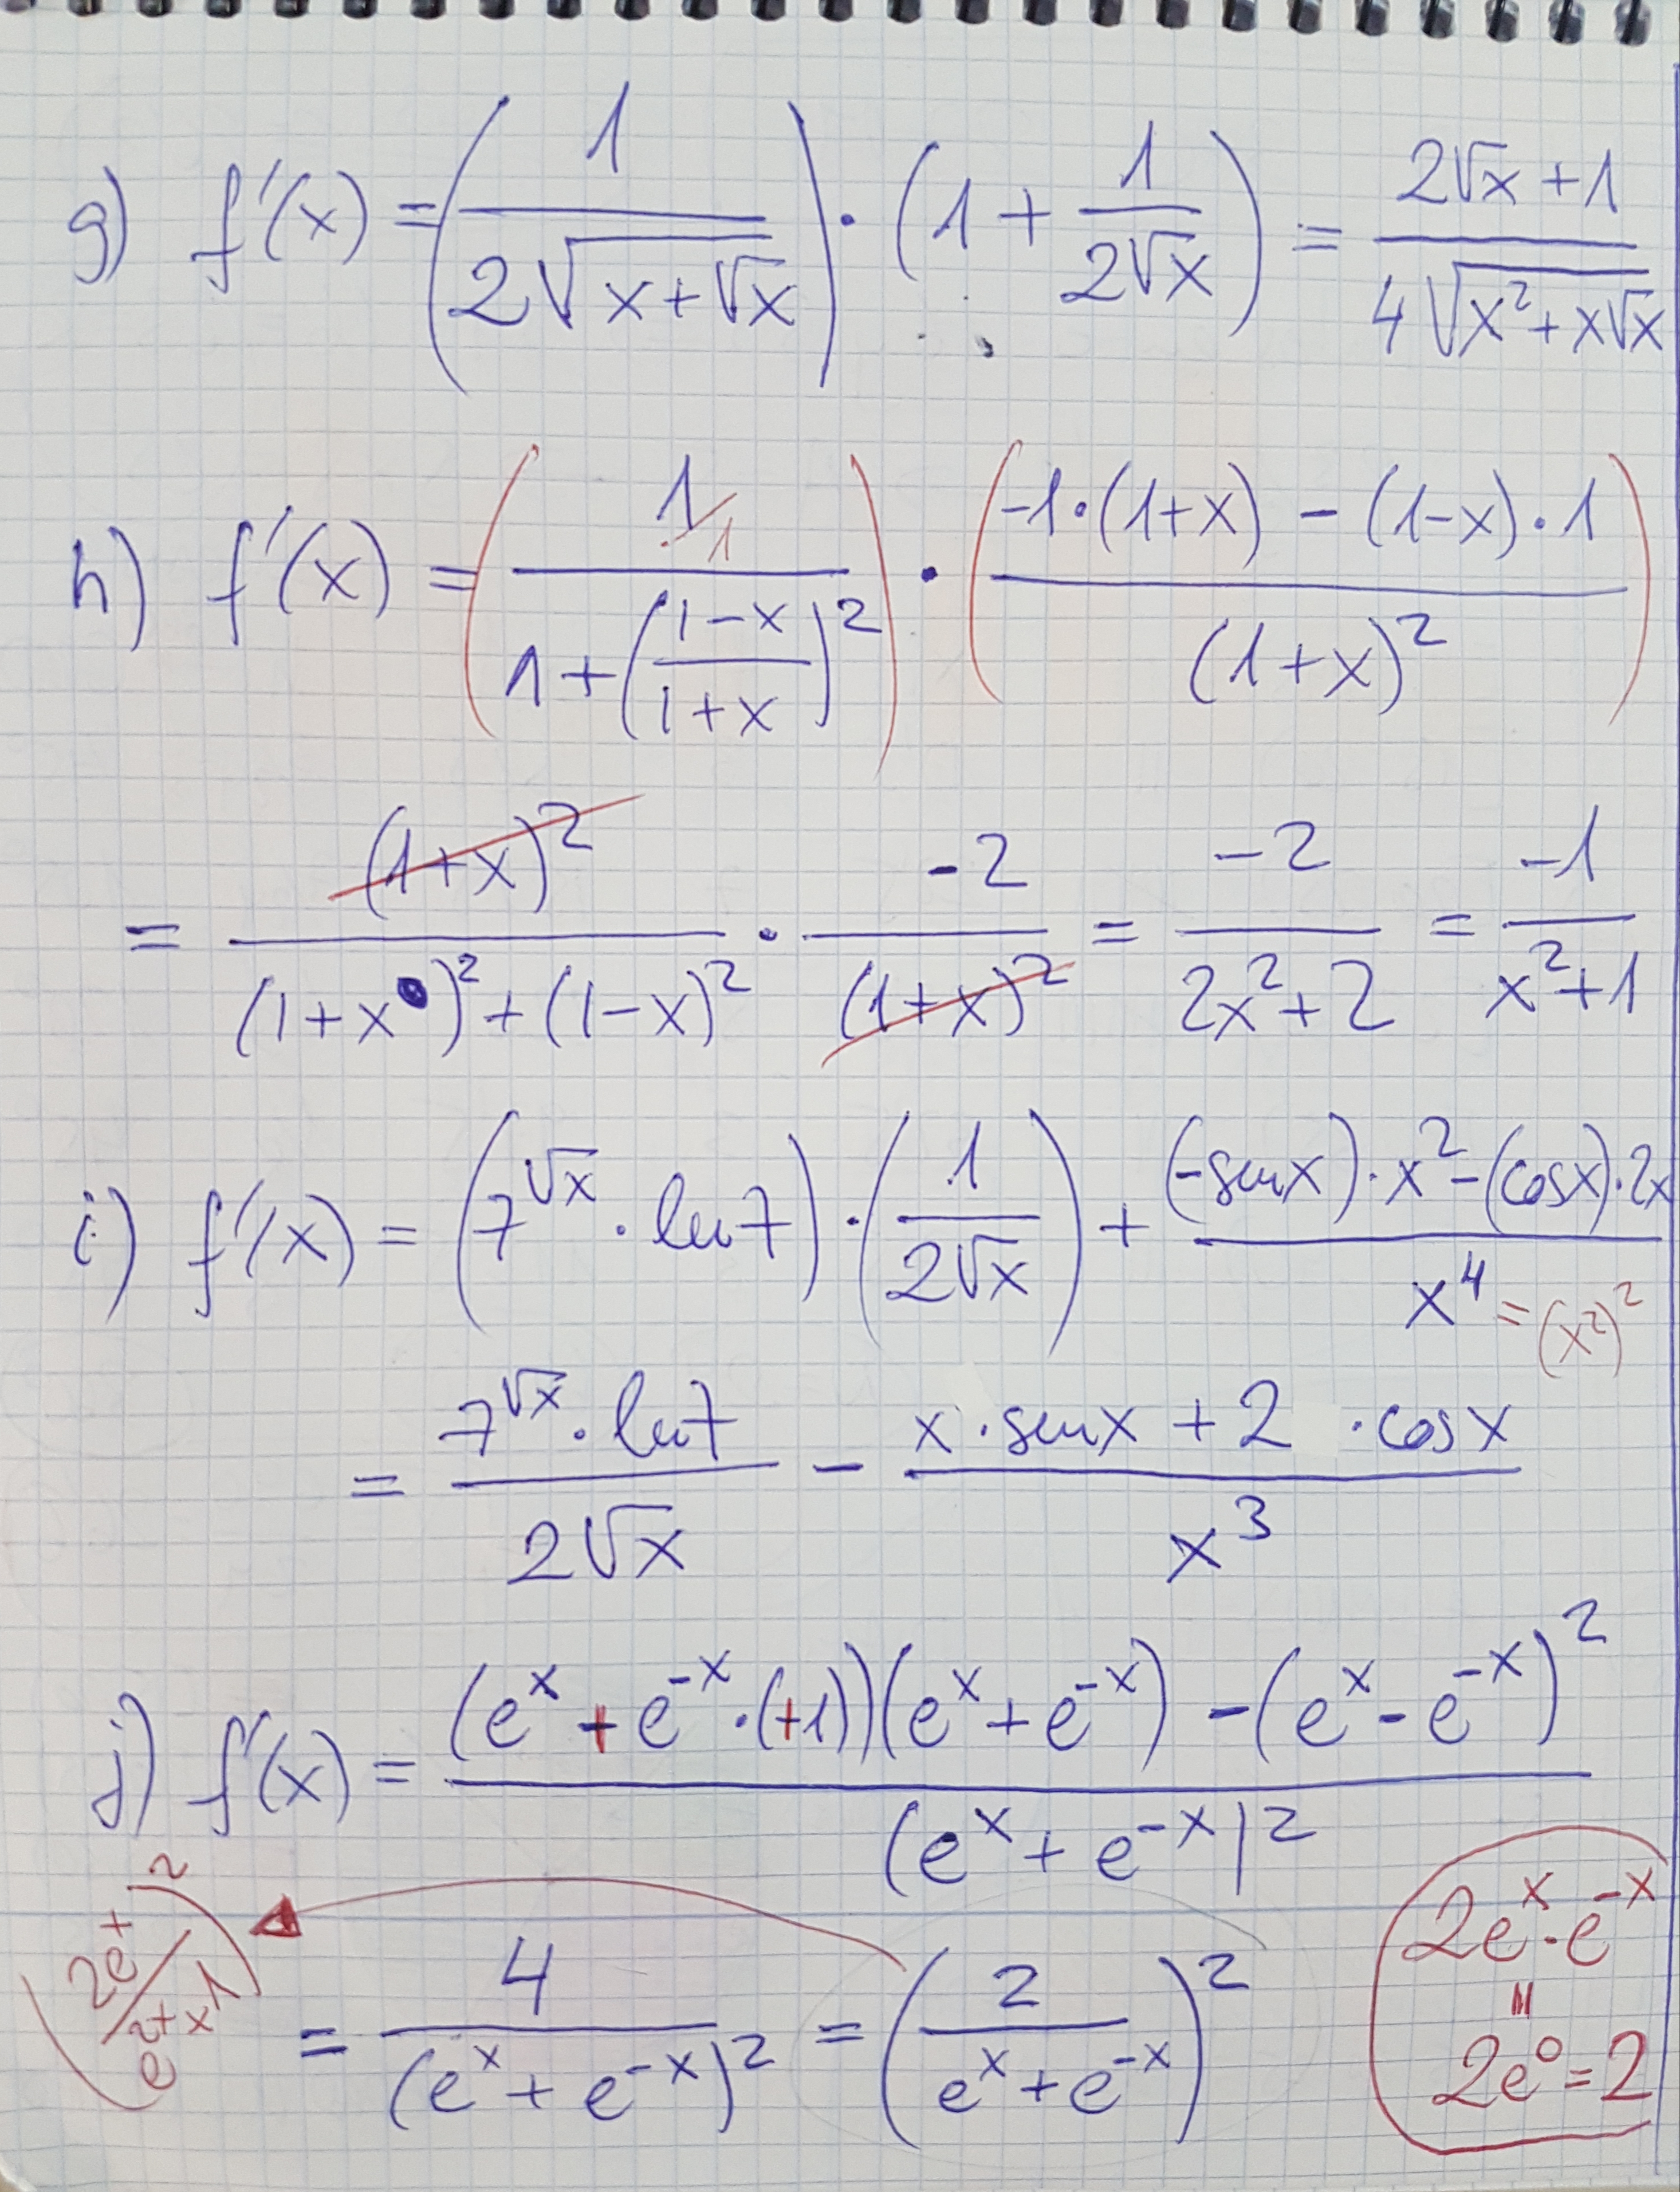 g) f'(x) = (1 / (2√(x+√x))) · (1 + 1/(2√x)) = (2√x + 1) / (4√(x²+x√x))
h) f'(x) = ((1/1) / (1+((1-x)/(1+x))²)) · ((-1·(1+x) - (1-x)·1) / (1+x)²)
= (1+x)² / ((1+x)²+(1-x)²) · -2 / (1+x)² = -2 / (2x²+2) = -1 / (x²+1)
i) f'(x) = (7^√x · ln7) · (1 / (2√x)) + ((-senx)·x² - (cosx)·2x) / x⁴ = (x²)²
= (7^√x · ln7) / (2√x) - (x·senx + 2 ·cosx) / x³
j) f'(x) = ((e^x + e^-x·(+1))(e^x + e^-x) - (e^x - e^-x)²) / (e^x + e^-x)²
= 4 / (e^x + e^-x)² = (2 / (e^x + e^-x))²
2e^x·e^-x
=
2e⁰=2